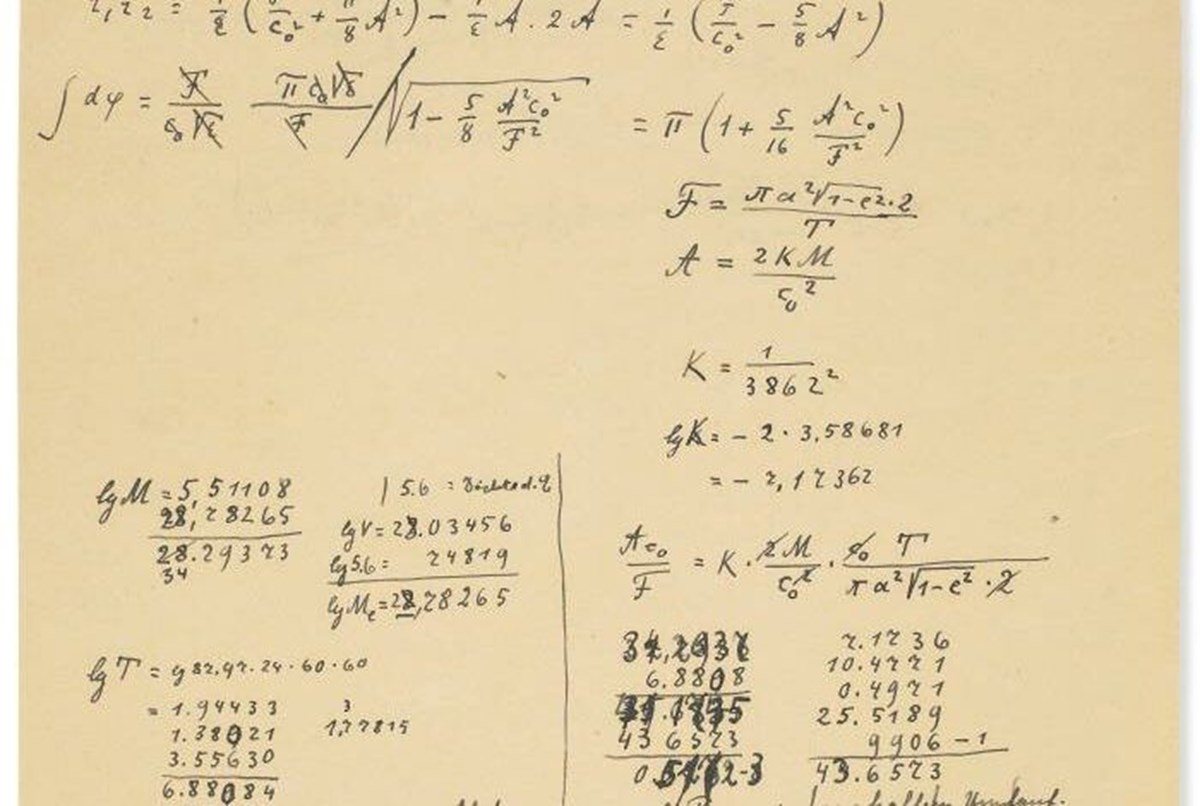 = 1/ε ( /c₀² + 11/8 A²) − 1/ε A . 2A = 1/ε ( /c₀² − 5/8 A²)
∫ dφ = F/(c₀√ε) π c₀√ε/F / √(1 − 5/8 A²c₀²/F²) = π (1 + 5/16 A²c₀²/F²)
F = πa²√(1−e²)·2 / T
A = 2KM / c₀²
K = 1 / 3862²
lg K = − 2 · 3,58681
= − 7,17362
lg M = 5,51108
28,78265
28.29373
34
| 5.6 =
lg V = 28.03456
lg 5.6 = 74819
lg Me = 28,78265
A c₀ / F = K · 2M / c₀² · c₀ T / πa²√(1−e²) · 2
lg T = lg 87,97.24·60·60
= 1.94433
1.38021
3.55630
6.88084
3
1,77815
6.8808
43 6573
7.1736
10.4771
0.4971
25.5189
9906 − 1
43.6573
Umlauf.